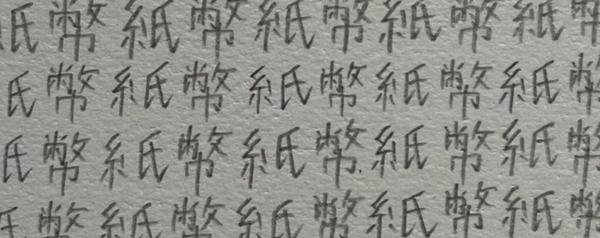 紙幣紙幣紙幣紙幣紙
幣紙幣紙幣紙幣紙
幣紙幣紙幣紙幣紙
幣紙幣紙幣紙幣紙